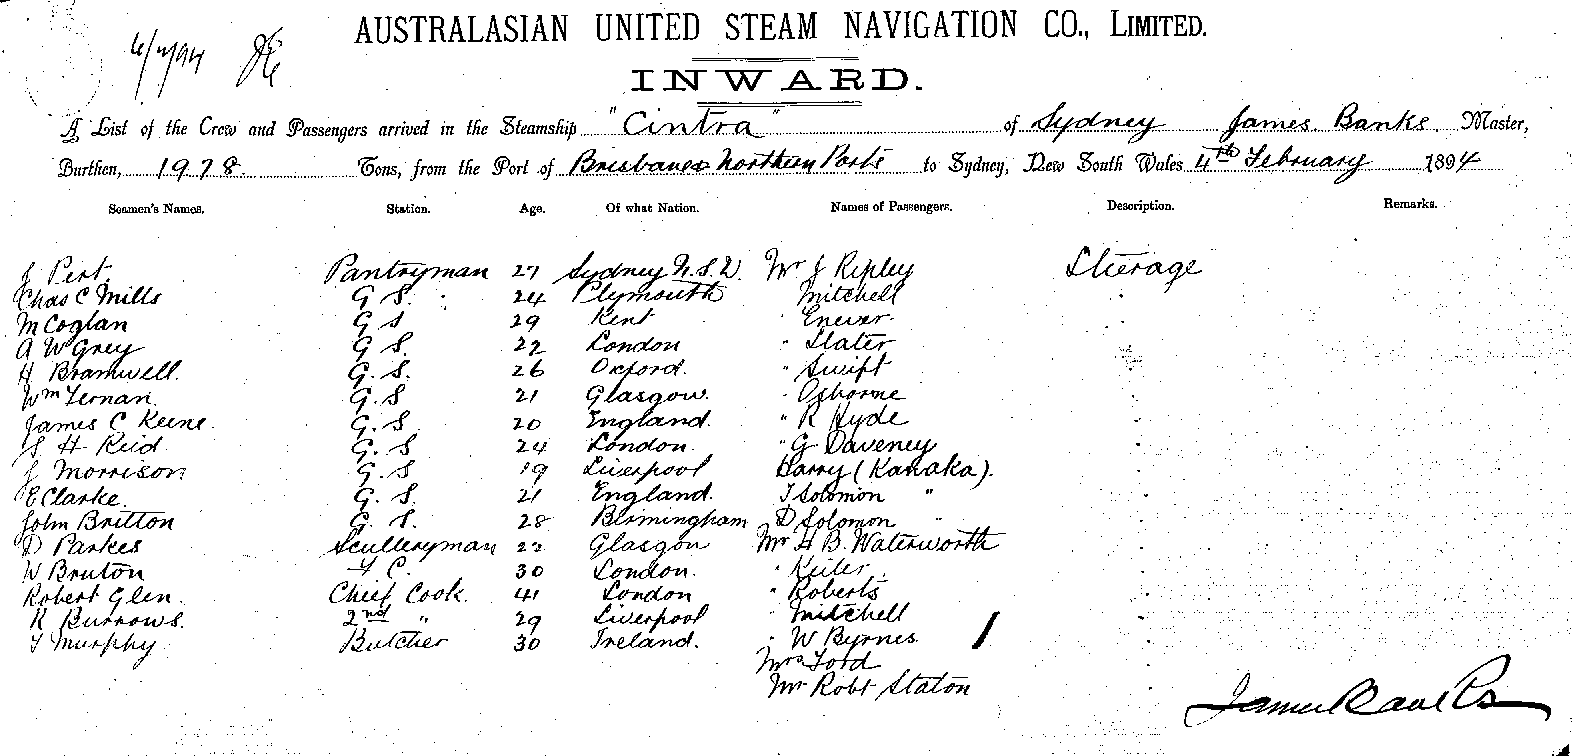 AUSTRALASIAN UNITED STEAM NAVIGATION CO., LIMITED.
INWARD.
A List of the Crew and Passengers arrived in the Steamship "Cintra" of Sydney James Banks. Master,
Burthen, 1978. Tons, from the Port of Brisbane & Northern Ports to Sydney, New South Wales 4th February 1894
Seamen's Names. Station. Age. Of what Nation. Names of Passengers. Description. Remarks.
J Pert. Pantryman 27 Sydney N.S.W. Mr J Ripley Steerage
Chas C Mills G S. 24 Plymouth Mitchell
M Coglan G S 29 Kent " Enever
A W Grey G S. 22 London " Slater
H Bramwell. G. S. 26 Oxford. " Swift
Wm Ternan. G. S 21 Glasgow. " Osborne
James C Keene. G. S 20 England. " R Hyde
S H Reid G. S 24 London. " G Daveney
J Morrison G. S 19 Liverpool Harry (Kanaka).
E Clarke G. S. 21 England. T Solomon "
John Britton G. S. 28 Birmingham D Solomon "
D Parkes Sculleryman 22 Glasgow Mr H B. Waterworth
W Bruton C. 30 London. "
Robert Glen. Chief Cook. 41 London " Roberts
R Burrows. 2nd " 29 Liverpool " Mitchell
T Murphy Butcher 30 Ireland. " W Byrnes
Mrs Ford
Mr Robt Staton
James Banks